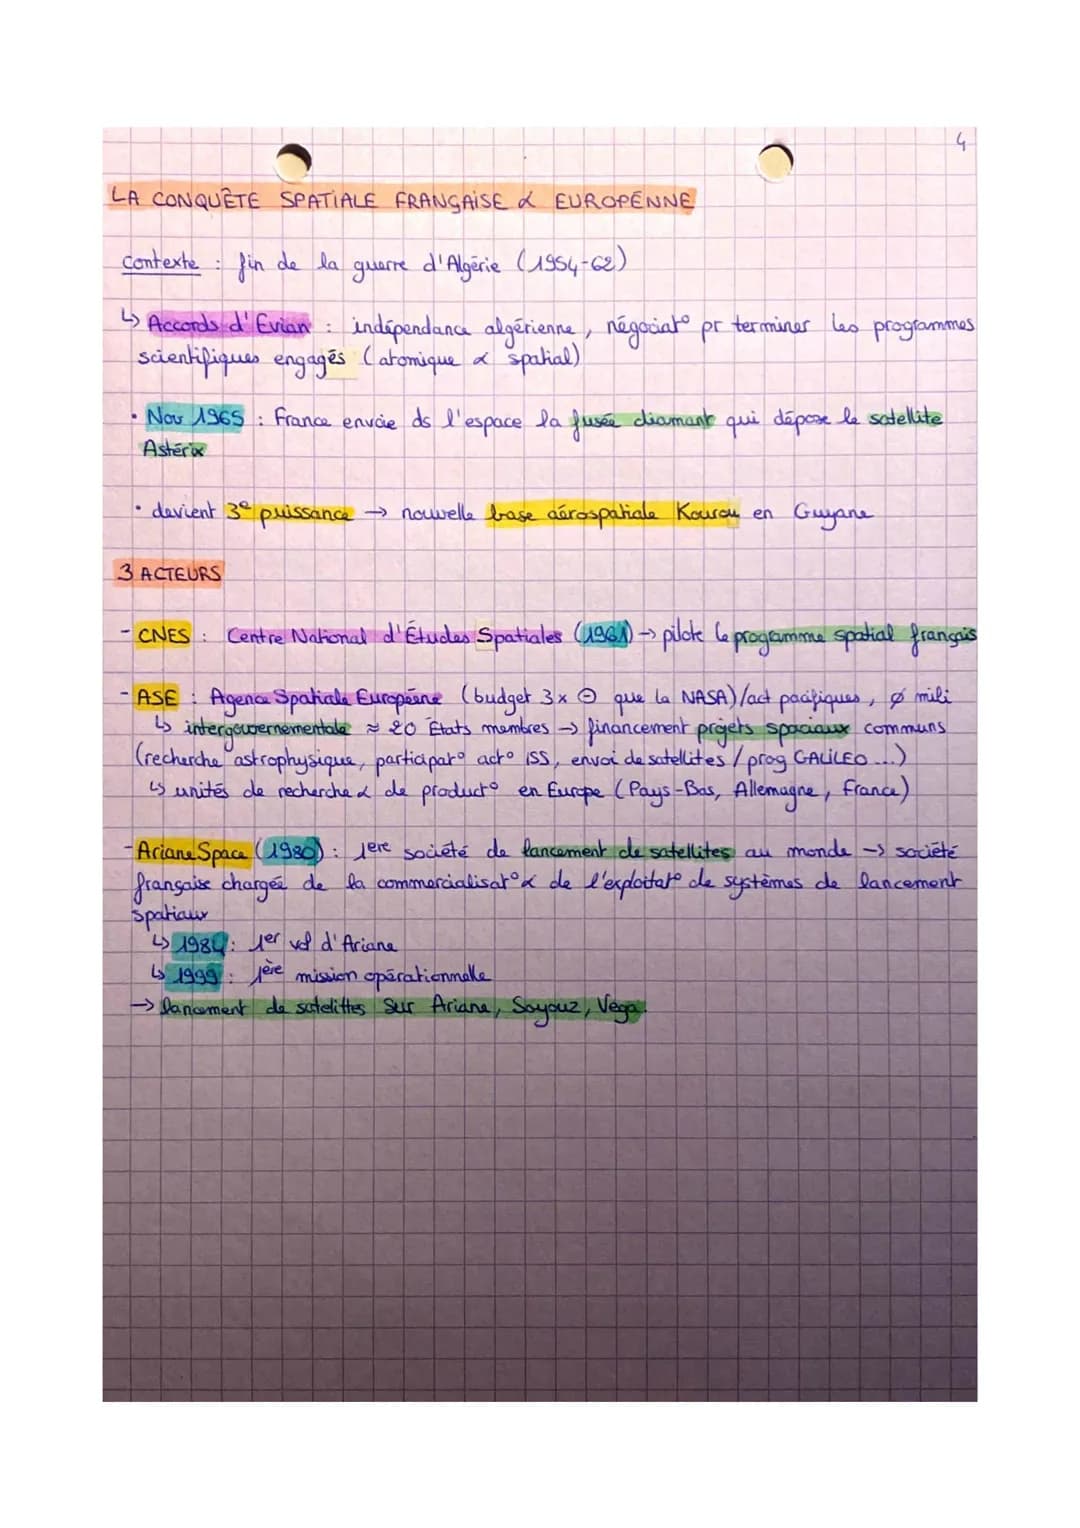 4
LA CONQUÊTE SPATIALE FRANÇAISE & EUROPÉNNE
contexte : fin de la guerre d'Algérie (1954-62)
↳ Accords d'Evian : indépendance algérienne, négociat° pr terminer les programmes
scientifiques engagés (atomique & spatial)
• Nov 1965 : France envoie ds l'espace la fusée diamant qui dépose le satellite
Astérix
• devient 3e puissance → nouvelle base aérospatiale Kourou en Guyane
3 ACTEURS
- CNES : Centre National d'Études Spatiales (1961) → pilote le programme spatial français
- ASE : Agence Spatiale Européene (budget 3x ⊖ que la NASA)/act pacifiques, ø mili
↳ intergouvernementale ≈ 20 États membres → financement projets spaciaux communs
(recherche astrophysique, participat° act° ISS, envoi de satellites / prog GALILEO ...)
↳ unités de recherche & de product° en Europe (Pays-Bas, Allemagne, France)
- ArianeSpace (1980) : 1ere société de lancement de satellites au monde → société
française chargée de la commercialisat° & de l'exploitat° de systèmes de lancement
spatiaux
↳ 1984 : 1er vol d'Ariane
↳ 1999 : 1ère mission opérationnelle
→ lancement de satelittes sur Ariane, Soyouz, Vega.